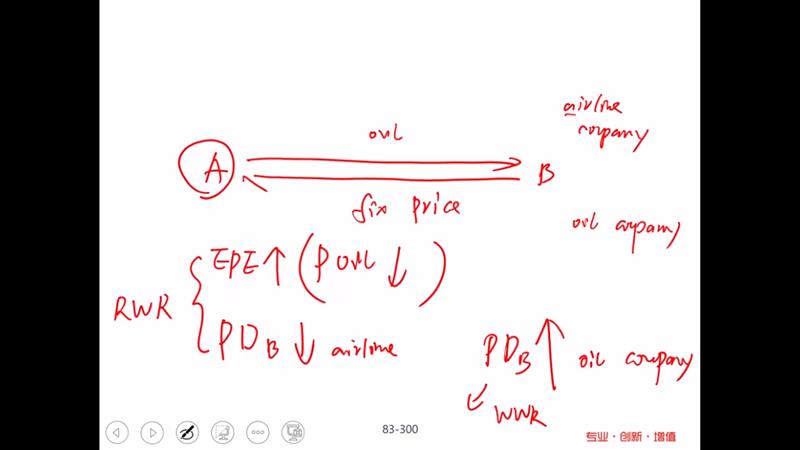 airline
company
A
oil
B
fix price
oil company
RWR
EPE↑ (P oil ↓)
PD_B ↓ airline
PD_B ↑ oil company
WWR
83-300
专业·创新·增值